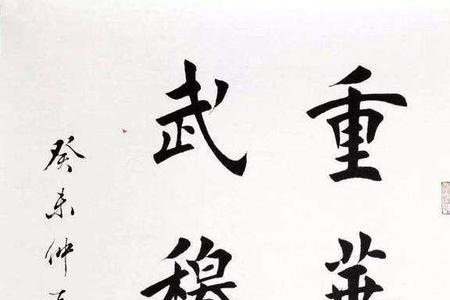 重華
武穆
癸未仲